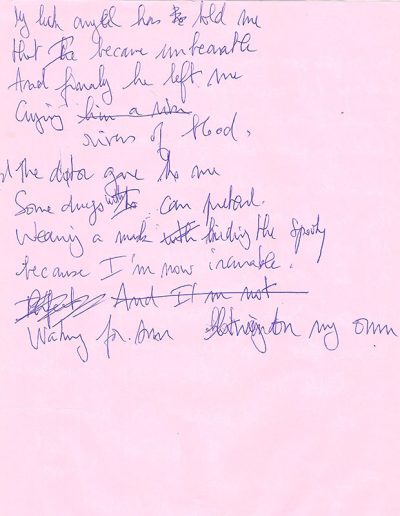 My luck angel has told me
that I became unbearable
And finaly he left me
Crying him a
rivers of blood.
The doctor gave to me
Some drugs with can pretend.
Wearing a mask with hiding the
because I'm now incurable.
And I'm not
Waiting for on my own